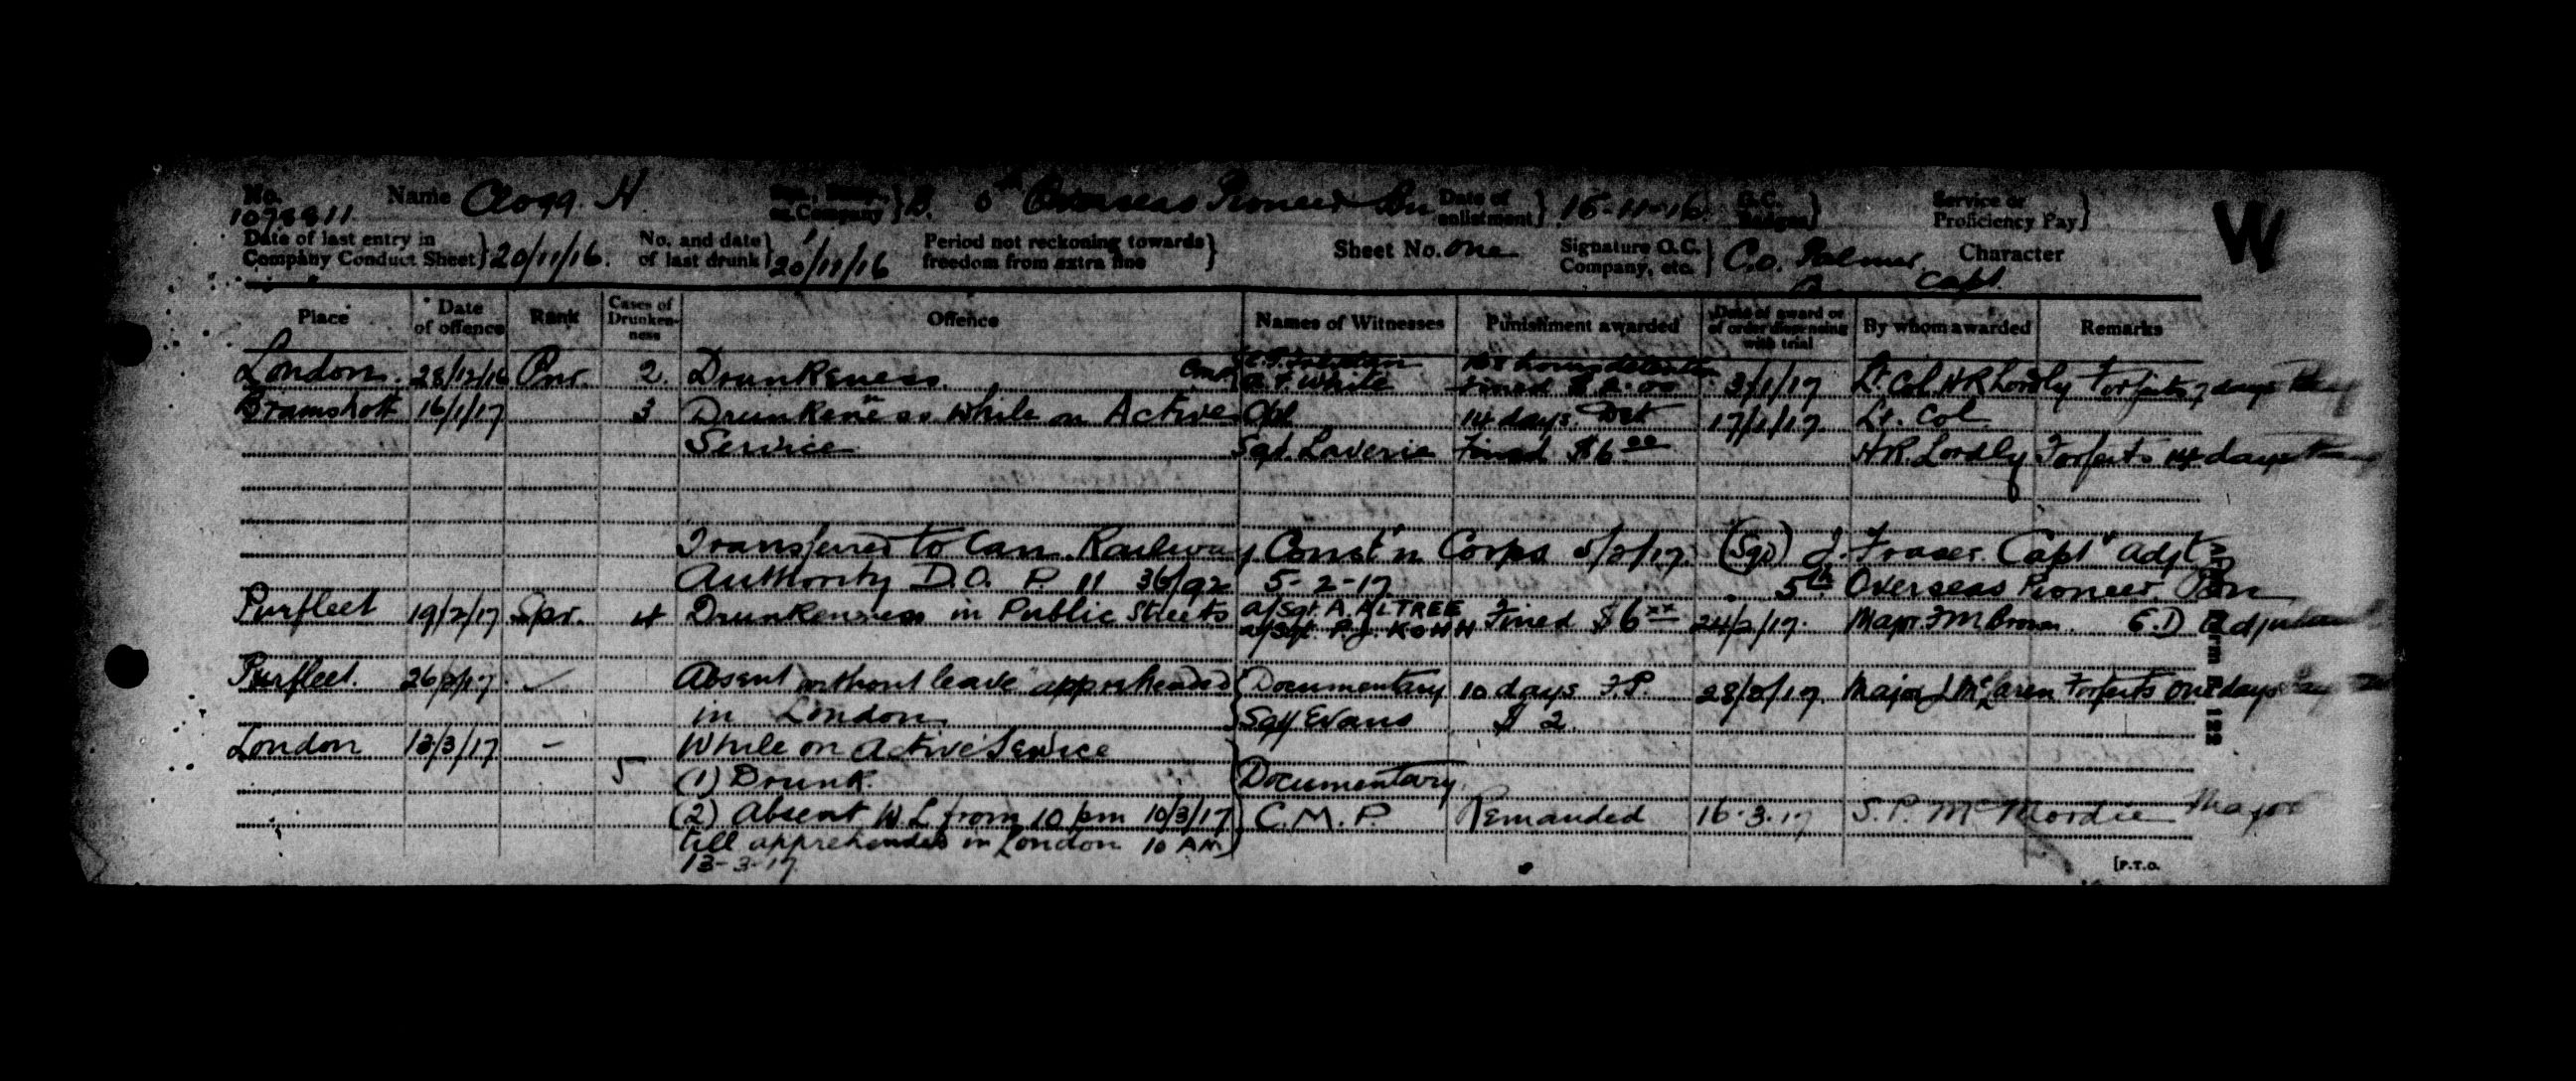 No. Name Clogg. H. or Company } B. 5th Overseas Pioneer Bn Date of enlistment } 15-11-16 G.C. Badges } Service or Proficiency Pay } W
1078811
Date of last entry in Company Conduct Sheet } 20/11/16. No. and date of last drunk } 20/11/16 Period not reckoning towards freedom from extra fine } Sheet No. One Signature O.C. Company, etc. } C.O. Palmer Capt. Character
Place Date of offence Rank Cases of Drunken-ness Offence Names of Witnesses Punishment awarded Date of award or of order dispensing with trial By whom awarded Remarks
London. 28/12/16 Pnr. 2. Drunkeness. White 168 hours detention Fined $ 3/1/17 Lt. Col. H R Lordly Forfeits 7 days Pay
Bramshott 16/1/17 3 Drunkeness while on Active Cpl. 14 days. Det 17/1/17. Lt. Col.
Service Sgt. Laverie Fined $6 00 H R Lordly Forfeits 14 days
Transferred to Can. Railway Const'n Corps 5/2/17. (Sgd) J. Fraser. Capt & Adjt
Authority D.O. P 11 5-2-17. 5th Overseas Pioneer Bn
Purfleet 19/2/17 Spr. 4 Drunkenness in Public Streets a/Sgt. A. ALTREE a/Sgt. P.J. KOHH Fined $6 xx 24/2/17. Major F M Brown. Adjutant
Purfleet. 26/2/17. Absent without leave apprehended { Documentary 10 days F.P. 28/2/17. Major J McLaren Forfeits one days Pay
in London. Sgt Evans $ 2
London 13/3/17 - While on Active Service
5 (1) Drunk. Documentary
(2) Absent W.L from 10 pm 10/3/17 C.M.P. Remanded 16.3.17 S. P. McMordie Major
till apprehended in London 10 AM
13-3-17.
122
[P.T.O.